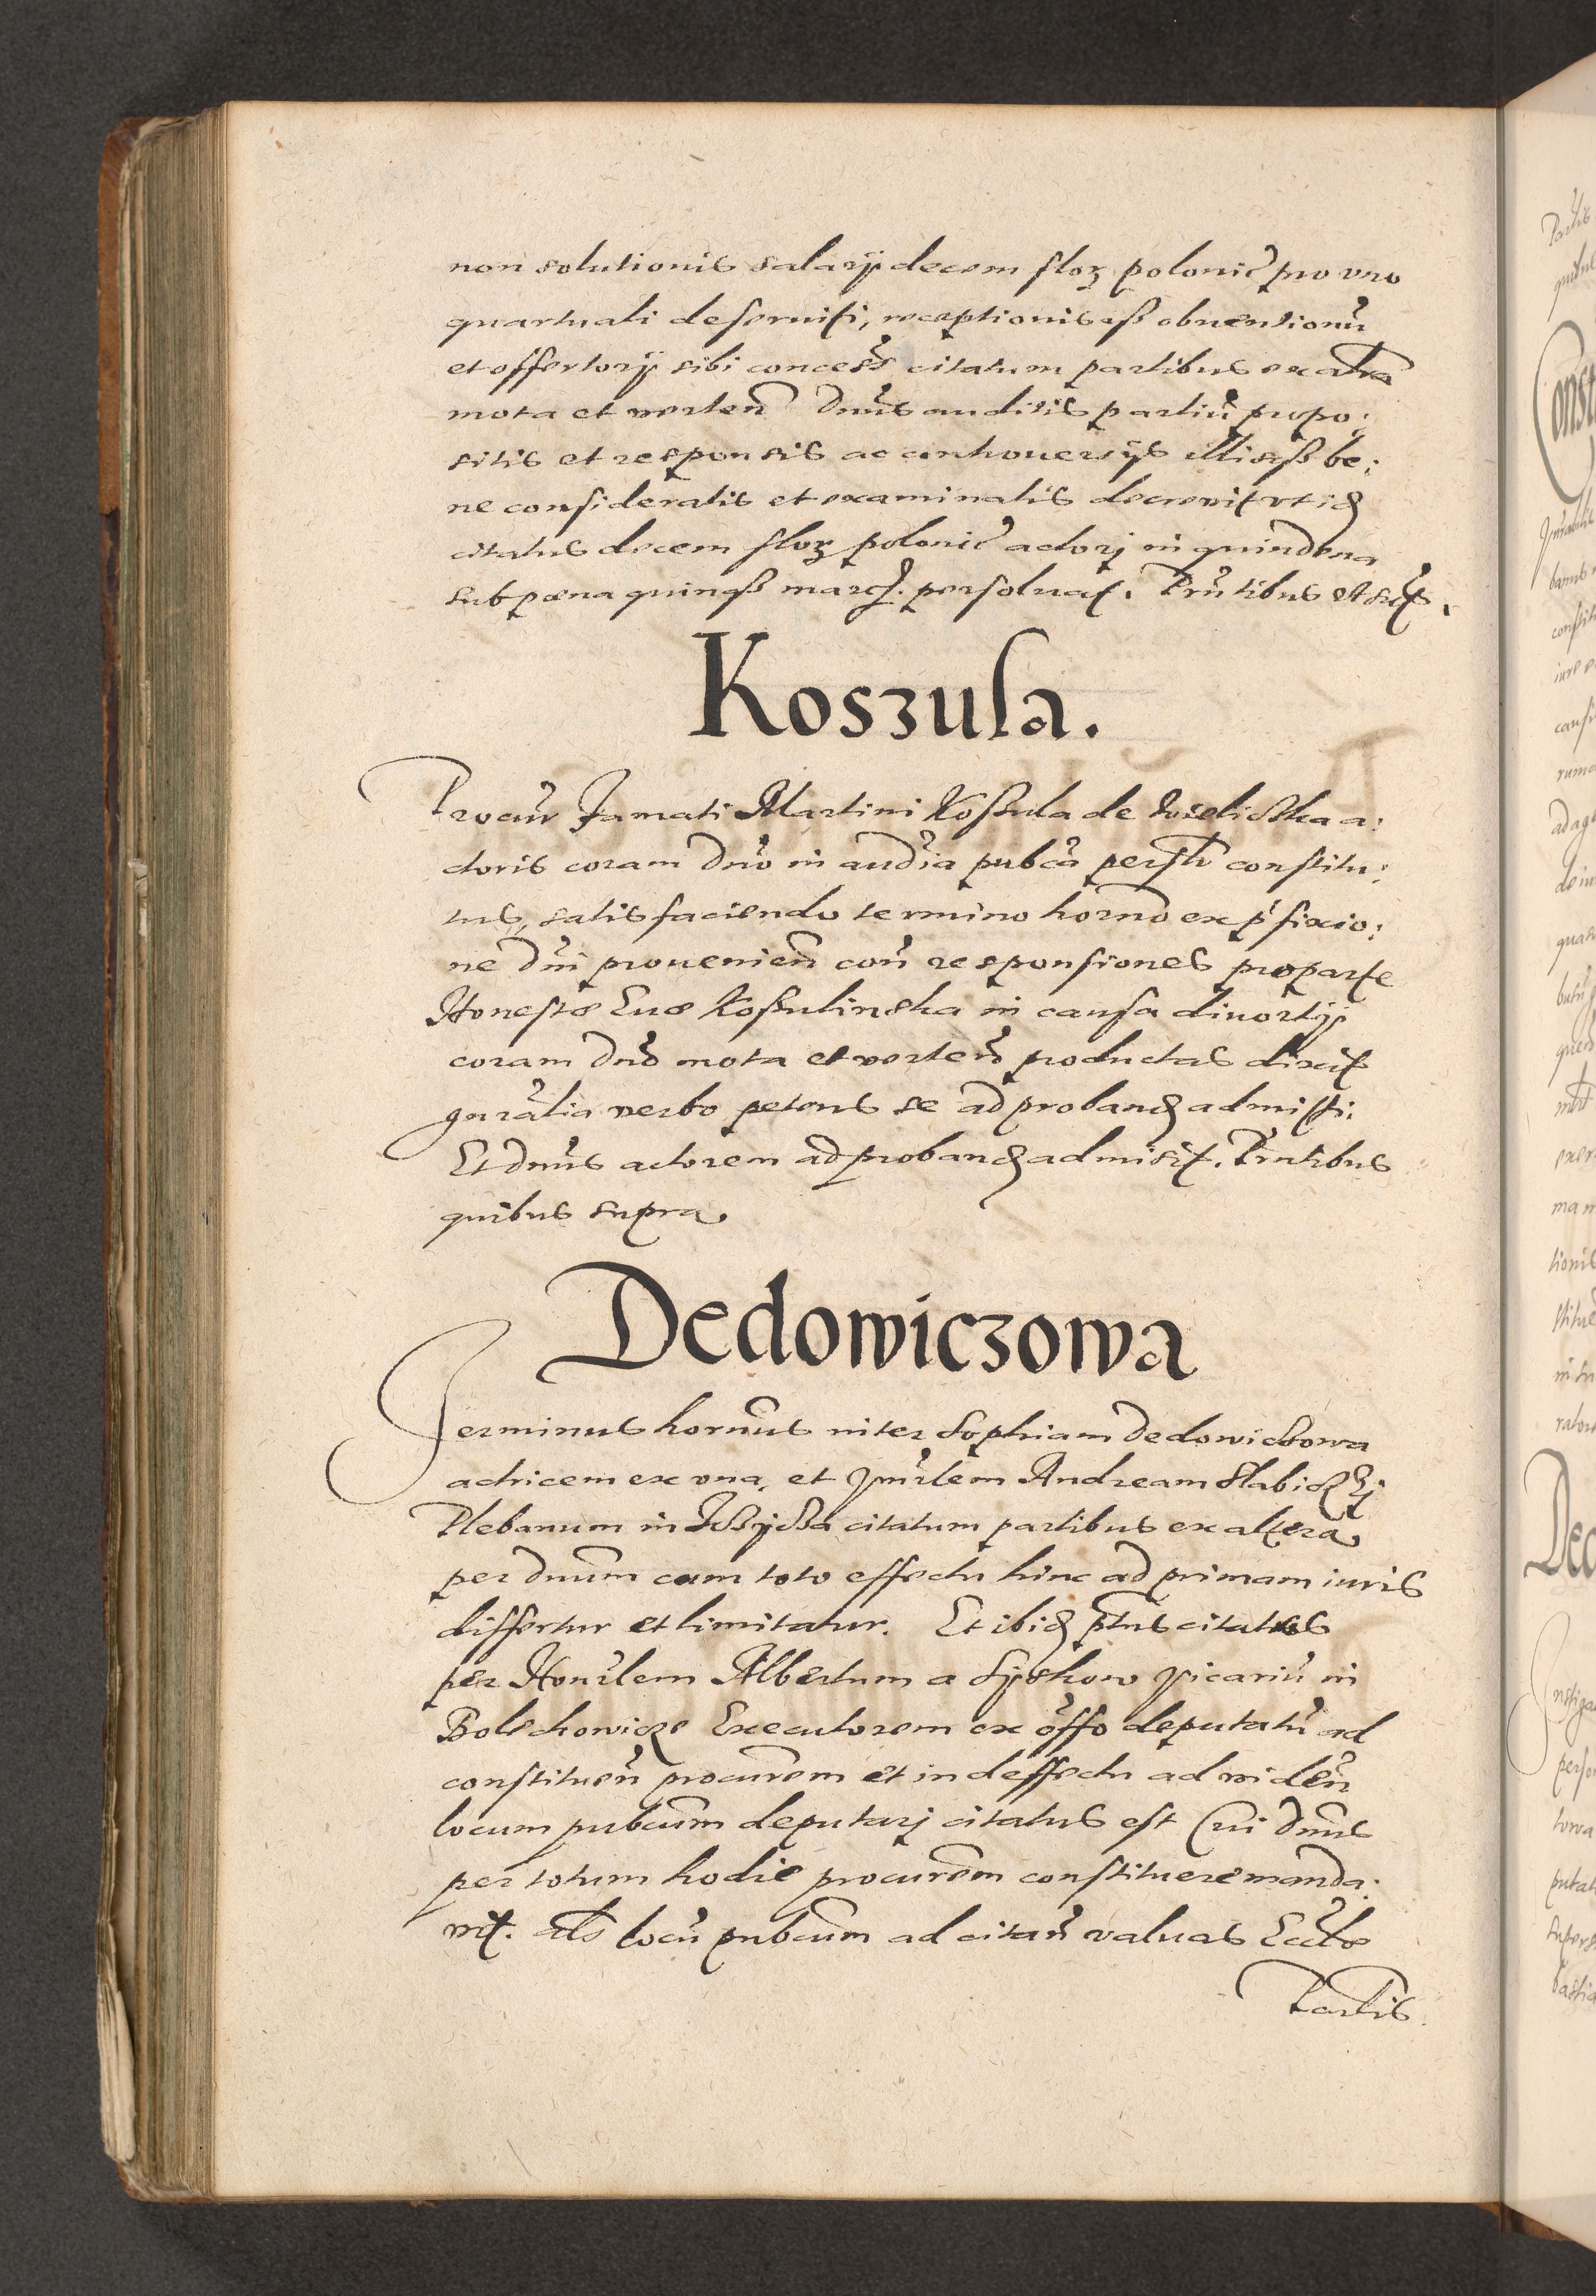 non solutionis salarij decem floꝝ polonic̃ pro vno
quartuali deseruiti, receptionisqꝫ obuentionũ
et offertorij sibi concess̃ citatum partibus ex altra
mota et verten̄ Dnũs auditis partiũ propo:
sitis et responsis ac controuersijs illisqꝫ be:
ne consideratis et examinatis decreuit vt id
citatus decem floꝝ polonic̃ actorj in quindena
sub pœna quinqꝫ marc. persoluat. Prñtibus
Koszula.
Procur̃ Famati Martini Koßula de Wieliczka a:
ctoris coram Dnõ in aud̃ia pubcã perslr constitu:
tus, satisfaciendo termino horno ex p̃fixio:
ne Dñi prouenien̄ con̄ responsiones pro parte
Honestæ Euæ Koßulinska in causa diuortij
coram Dnõ mota et verten̄ productas dixit
gnrãlia verbo petens se ad proband admitti:
Et Dnũs actorem ad proband admisit. Prñtibus
quibus supra
Dedowiczowa
Terminus hornus inter Sophiam Dedowiczowa
actricem ex vna, et Vnrlem Andream Slabiczkj
Plebanum in citatum partibus ex altera
per Dnum cum toto effectu hinc ad primam iuris
differtur et limitatur. Et ibid ptus citatus
per Honrlem Albertum a Vicariũ in
Bolechowicze Executorem ex offo deputatũ ad
constituen̄ procurem et in deffectu ad viden̄
locum pubcum deputarj citatus est Cui Dnus
per totum hodie procurem constituere manda:
vit. als locũ pubcum ad citan̄ valuas Eccłæ
Partis